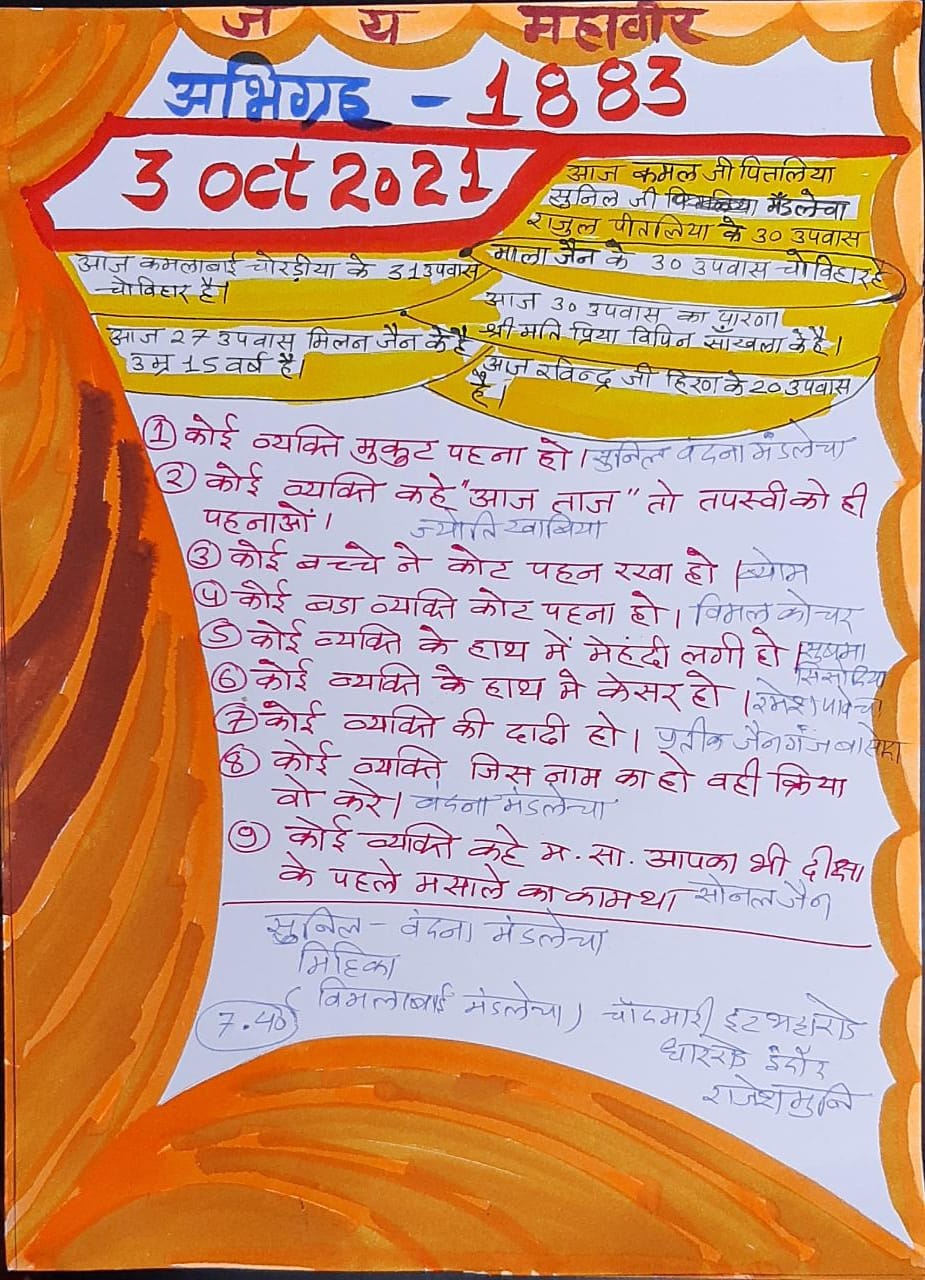 ज य महावीर
अभिग्रह - 1883
3 Oct 2021
आज कमल जी पितलिया
सुनिल जी मंडलेचा
राजुल पीतलिया के 30 उपवास
माला जैन के 30 उपवास चोविहार है
आज कमलाबाई चोरड़ीया के 31 उपवास
चोविहार है।
आज 30 उपवास का पारणा
श्रीमति प्रिया विपिन साँखला के है।
आज 27 उपवास मिलन जैन के है
उम्र 15 वर्ष है।
आज रविन्द्र जी हिरण के 20 उपवास
है।
① कोई व्यक्ति मुकुट पहना हो। सुनिल वंदना मंडलेचा
② कोई व्यक्ति कहे "आज ताज" तो तपस्वी को ही
पहनाओं। ज्योति खाबिया
③ कोई बच्चे ने कोट पहन रखा हो।
④ कोई बडा व्यक्ति कोट पहना हो। विमल कोचर
⑤ कोई व्यक्ति के हाथ में मेहंदी लगी हो। सुषमा
सिसोदिया
⑥ कोई व्यक्ति के हाथ मे केसर हो। रमेश
⑦ कोई व्यक्ति की दाढी हो। प्रतीक जैन गंजबासोदा
⑧ कोई व्यक्ति जिस नाम का हो वही क्रिया
वो करे। वंदना मंडलेचा
⑨ कोई व्यक्ति कहे म.सा. आपका भी दीक्षा
के पहले मसाले का काम था। सोनल जैन
सुनिल - वंदना मंडलेचा
मिहिका
विमलाबाई मंडलेचा) चाँदमारी ईट भट्टा रोड
7.40
धार रोड इंदौर
राजेश मुनि